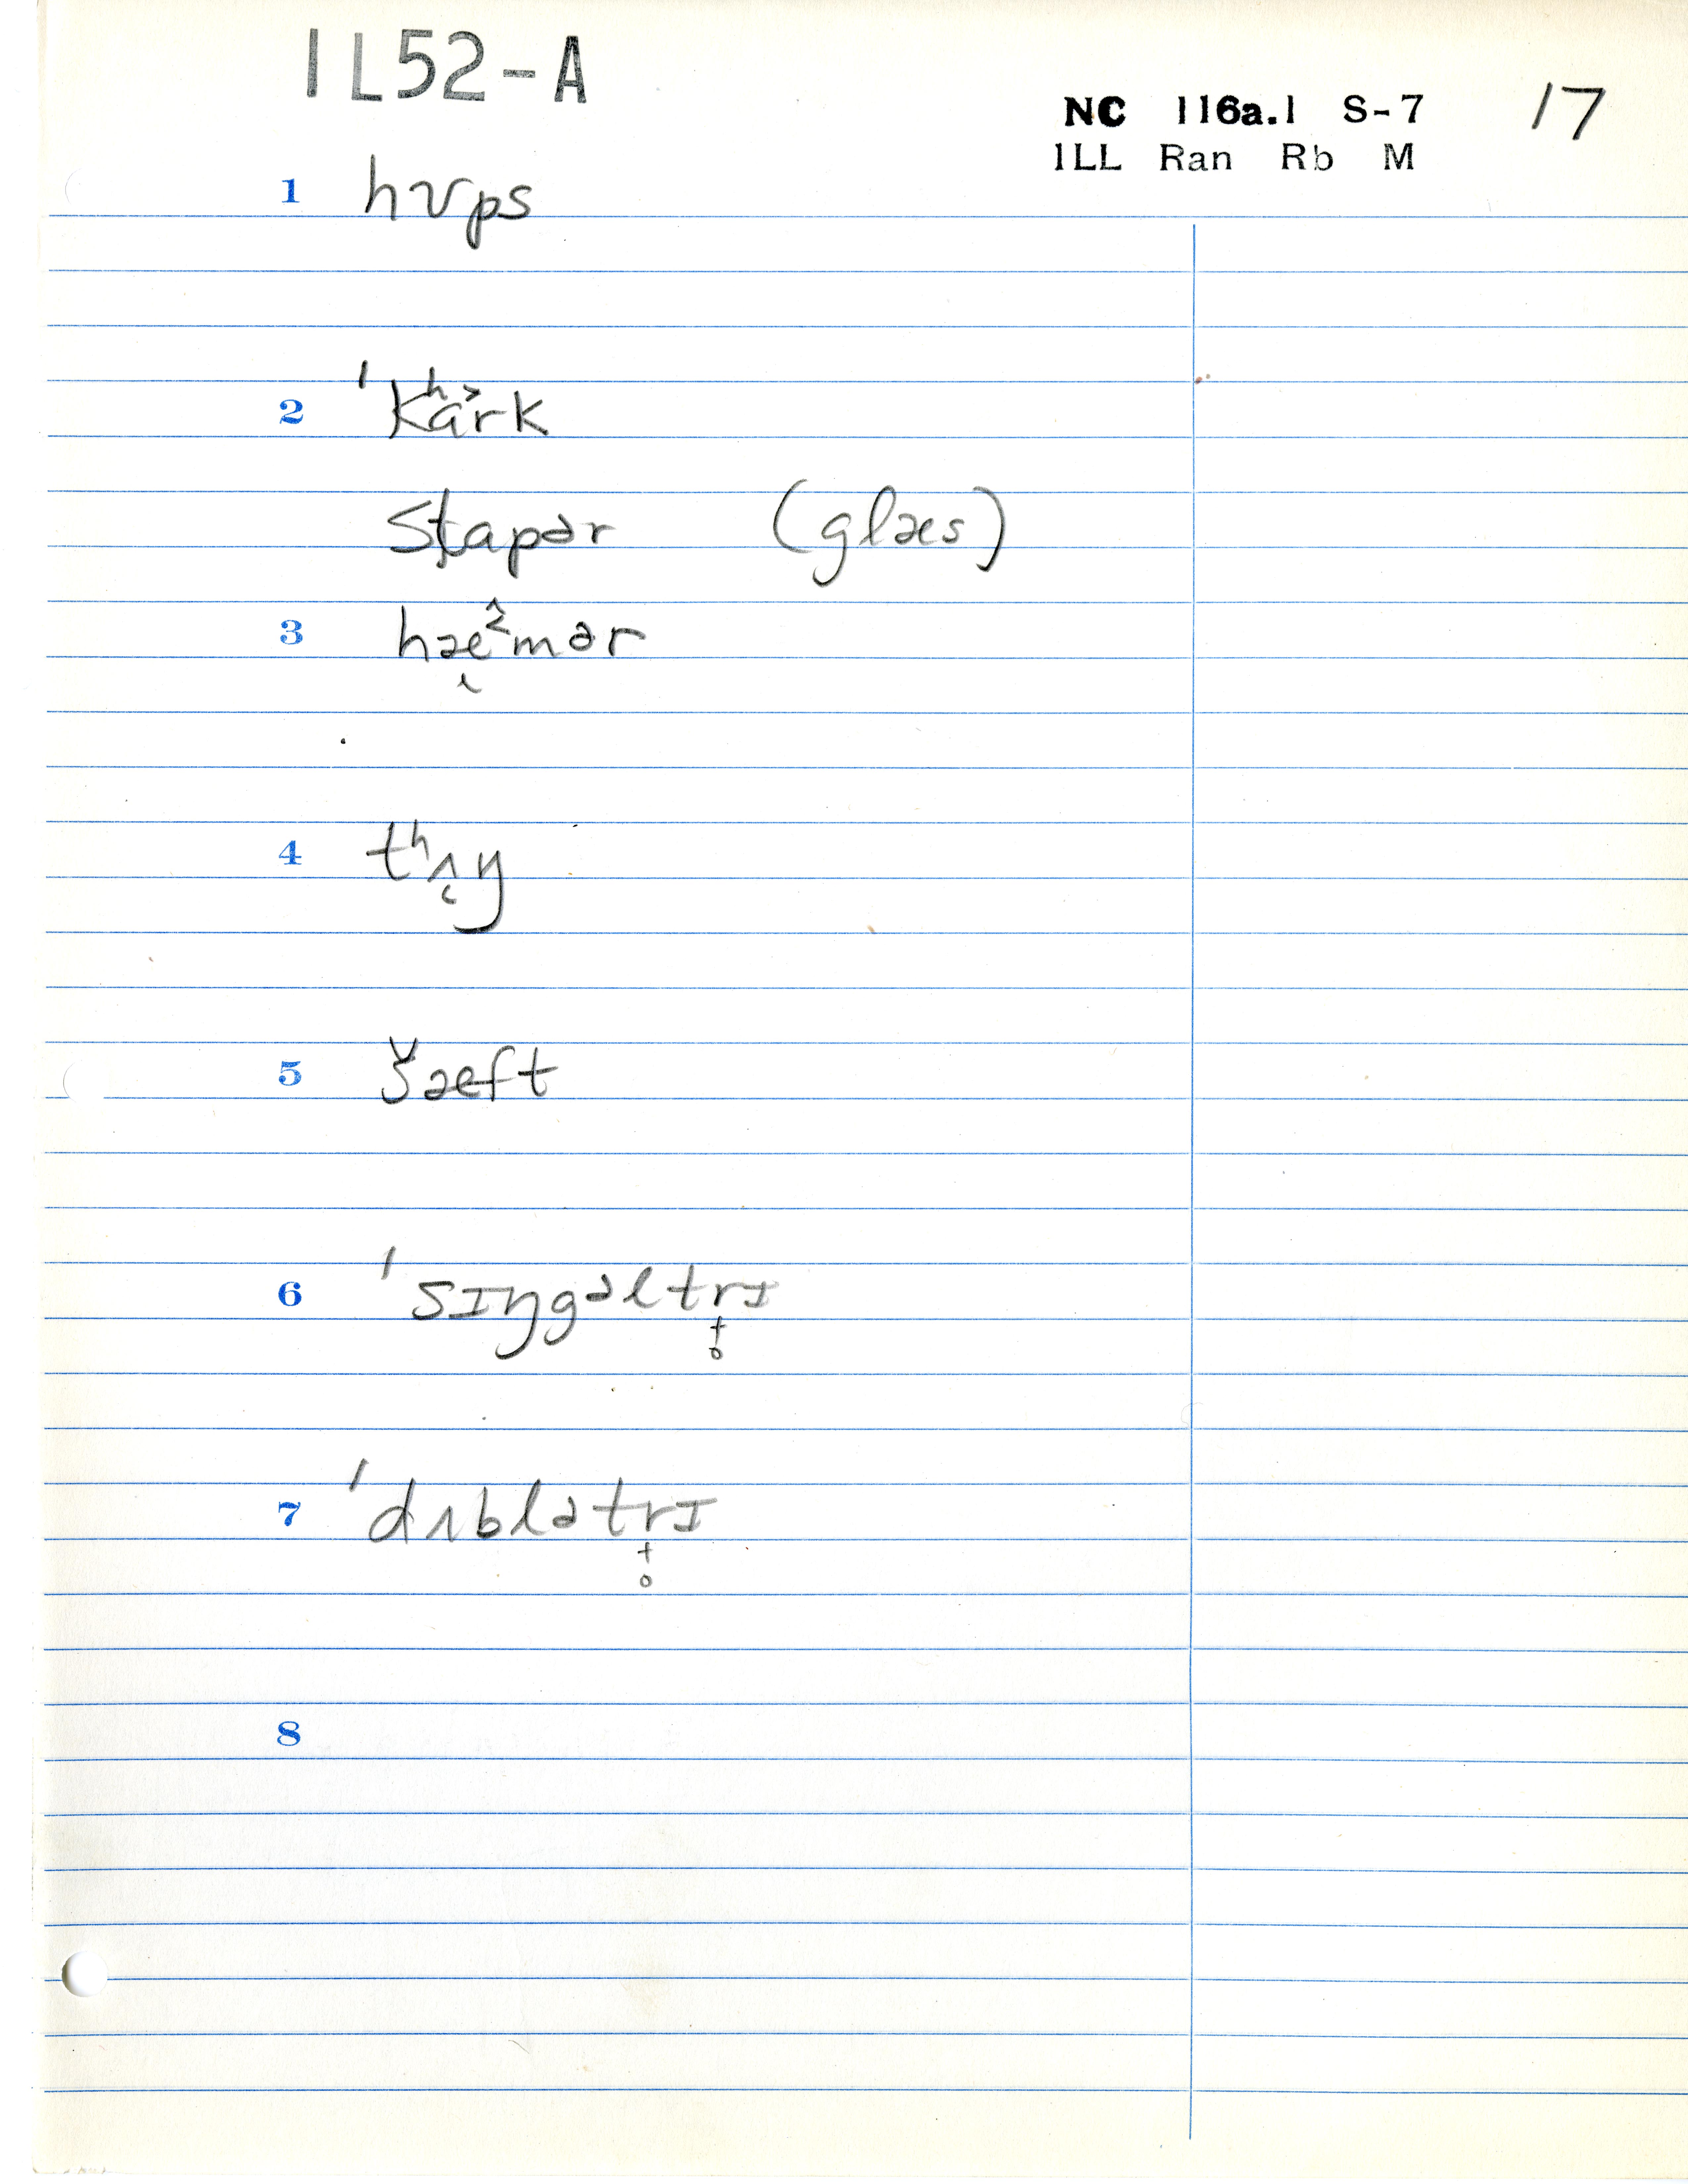 1L52-A
NC 116a.1 S-7 17
1LL Ran Rb M
1 hʊps
2 ˈkʰɑ˃rk
stapər (glæs)
3 hæ̜^˂mər
4 tʰʌ̜ŋ
5 šæft
6 ˈsɪŋgəltrɪ
7 ˈdʌblətrɪ
8